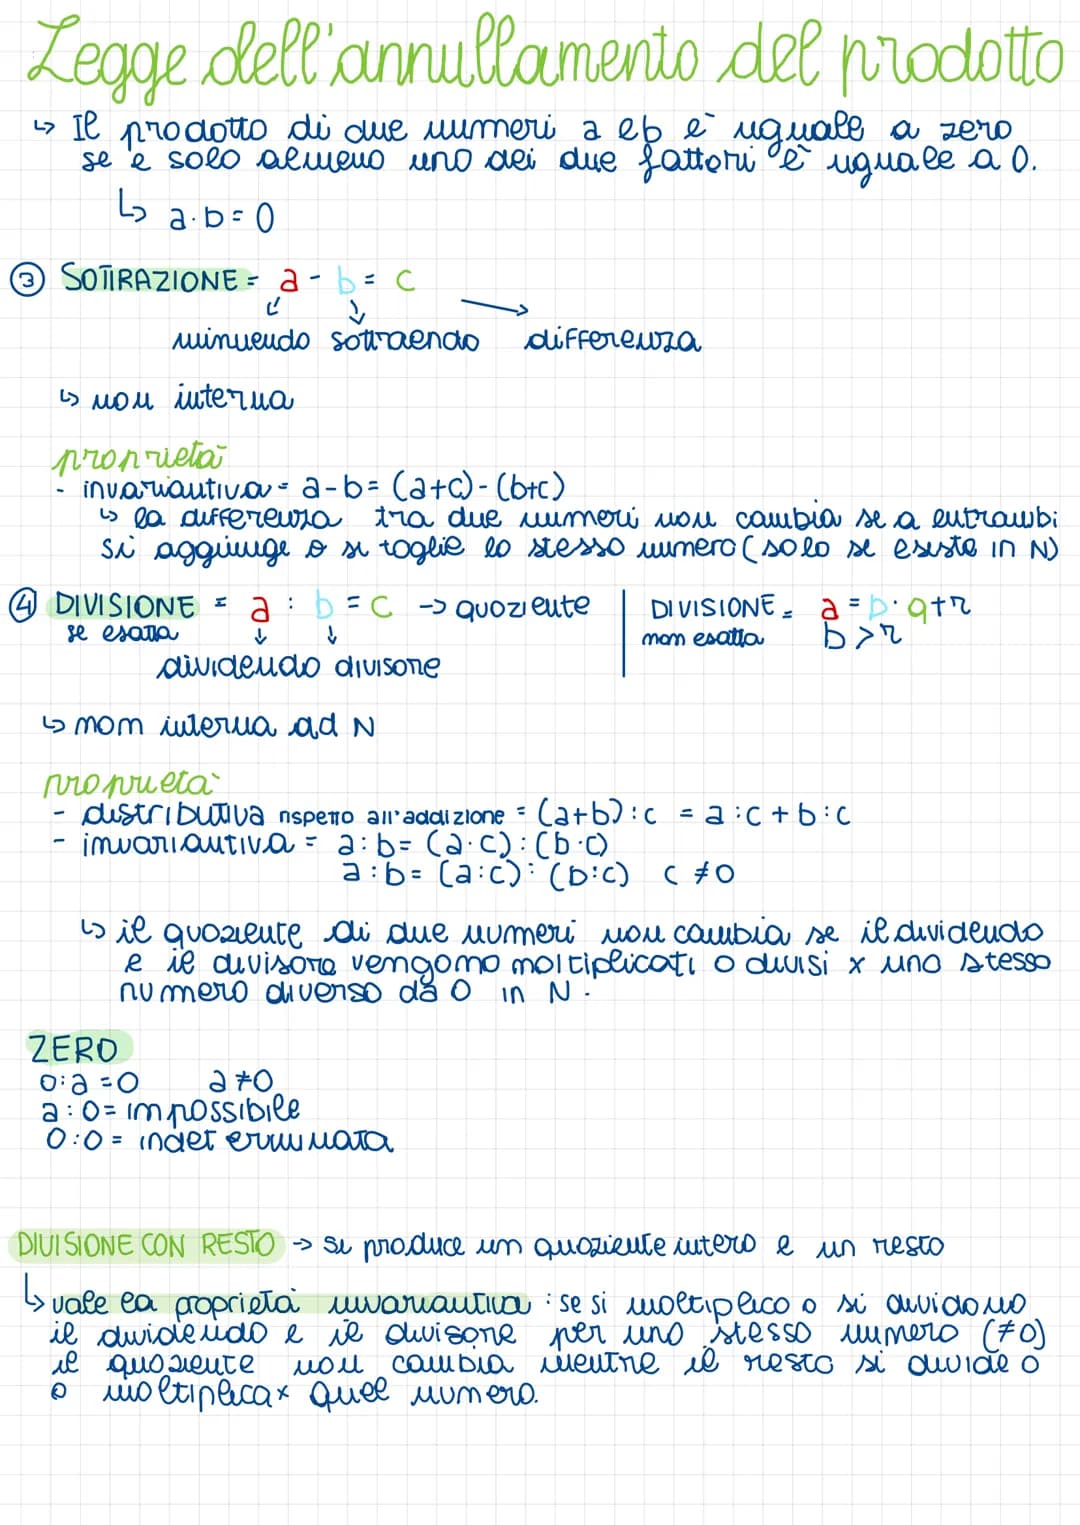 Legge dell'annullamento del prodotto
↳ Il prodotto di due numeri a e b è uguale a zero
se e solo almeno uno dei due fattori è uguale a 0.
↳ a·b=0
③ SOTTRAZIONE = a - b = c
minuendo sottraendo differenza
↳ non interna
proprietà
- invariantiva = a-b= (a+c)-(b+c)
↳ la differenza tra due numeri non cambia se a entrambi
si aggiunge o si toglie lo stesso numero (solo se esiste in N)
④ DIVISIONE = a : b = c → quoziente
se esatta
dividendo divisore
DIVISIONE = a = b·q+r
non esatta b>r
↳ non interna ad N
proprietà
- distributiva rispetto all'addizione = (a+b):c = a:c + b:c
- invariantiva = a:b= (a·c):(b·c)
a:b= (a:c):(b:c) c ≠0
↳ il quoziente di due numeri non cambia se il dividendo
e il divisore vengono moltiplicati o divisi x uno stesso
numero diverso da 0 in N.
ZERO
0:a=0 a≠0
a:0= impossibile
0:0= indeterminata
DIVISIONE CON RESTO → si produce un quoziente intero e un resto
↳ vale la proprietà invariantiva : se si moltiplico o si dividono
il dividendo e il divisore per uno stesso numero (≠0)
il quoziente non cambia mentre il resto si divide o
o moltiplica x quel numero.